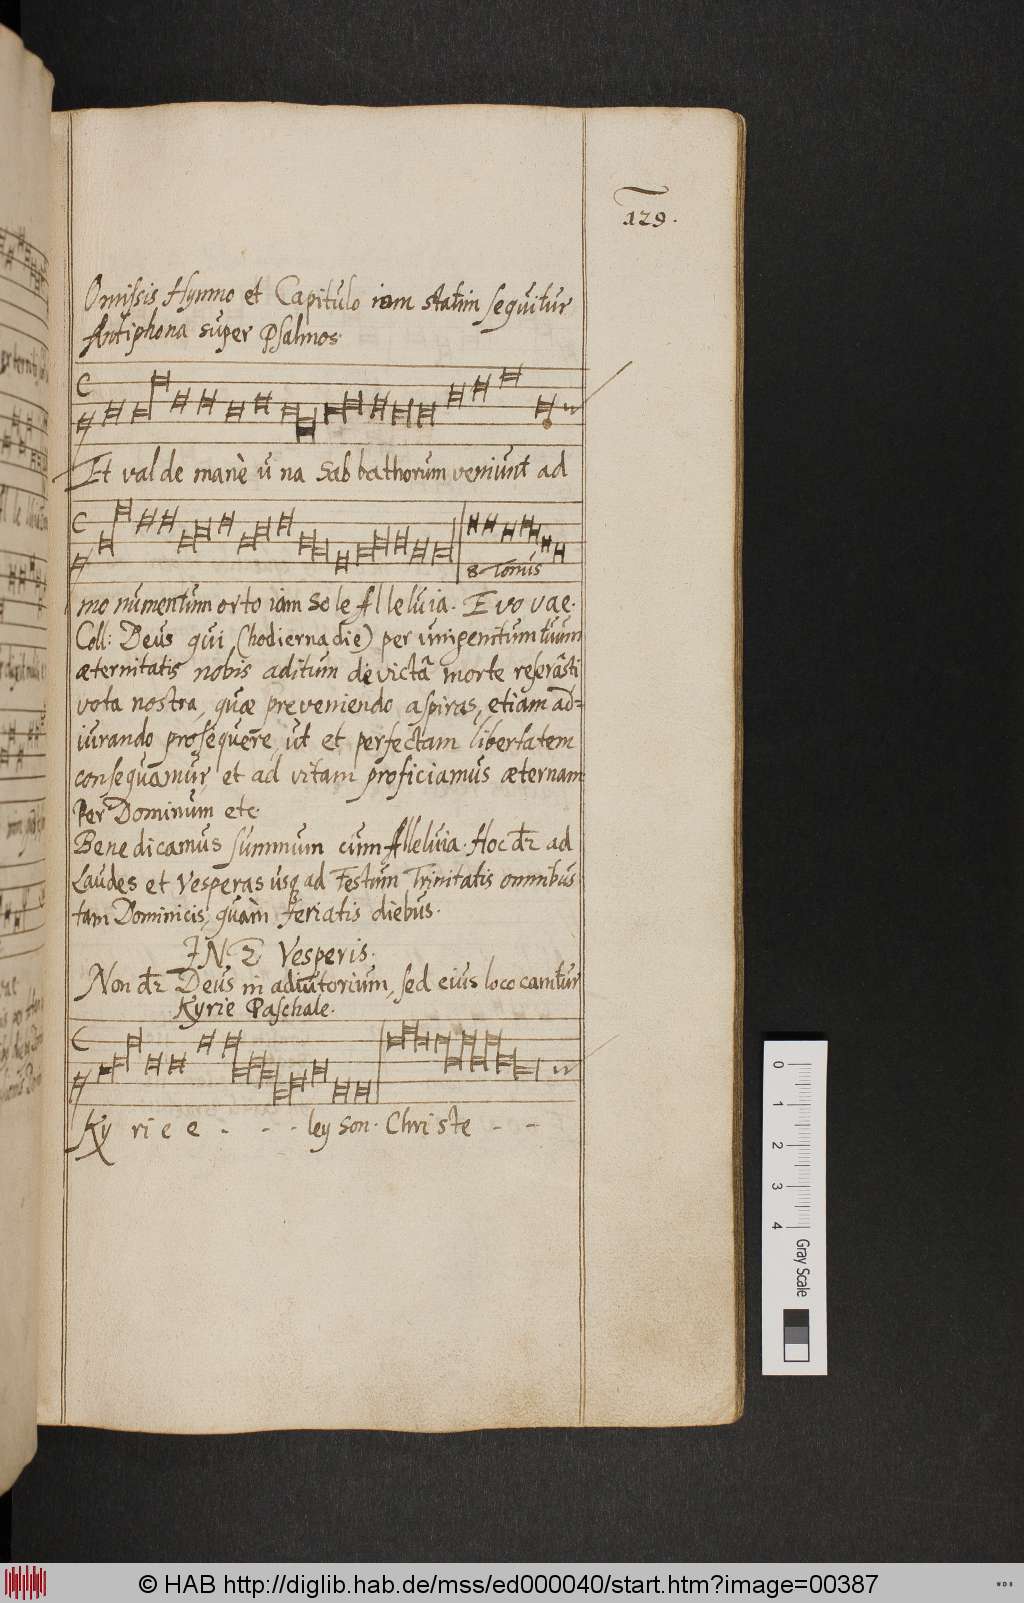 129.
Omissis Hymno et Capitulo iam statim sequitur
Antiphona super Psalmos.
Et val de manè u na Sab bathorum veniunt ad
8 Tonus
mo numentum orto iam So le Al le luia. E vo vae.
Coll: Deus qui (hodierna die) per unigenitum tuum
æternitatis nobis aditum devictâ morte reserâsti
vota nostra, quæ preveniendo aspiras, etiam ad=
iuvando prosequere, ut et perfectam libertatem
consequamur, et ad vitam proficiamus æternam
Per Dominum etc.
Benedicamus summum cum Alleluia. Hoc dr ad
Laudes et Vesperas usq ad Festum Trinitatis omnibus
tam Dominicis, quàm feriatis diebus.
IN. 2 Vesperis.
Non dr Deus in adiutorium, sed eius loco cantur
Kyrie Paschale.
Ky ri e e - - - ley son. Chri ste - -
0 1 2 3 4 Gray Scale
© HAB http://diglib.hab.de/mss/ed000040/start.htm?image=00387